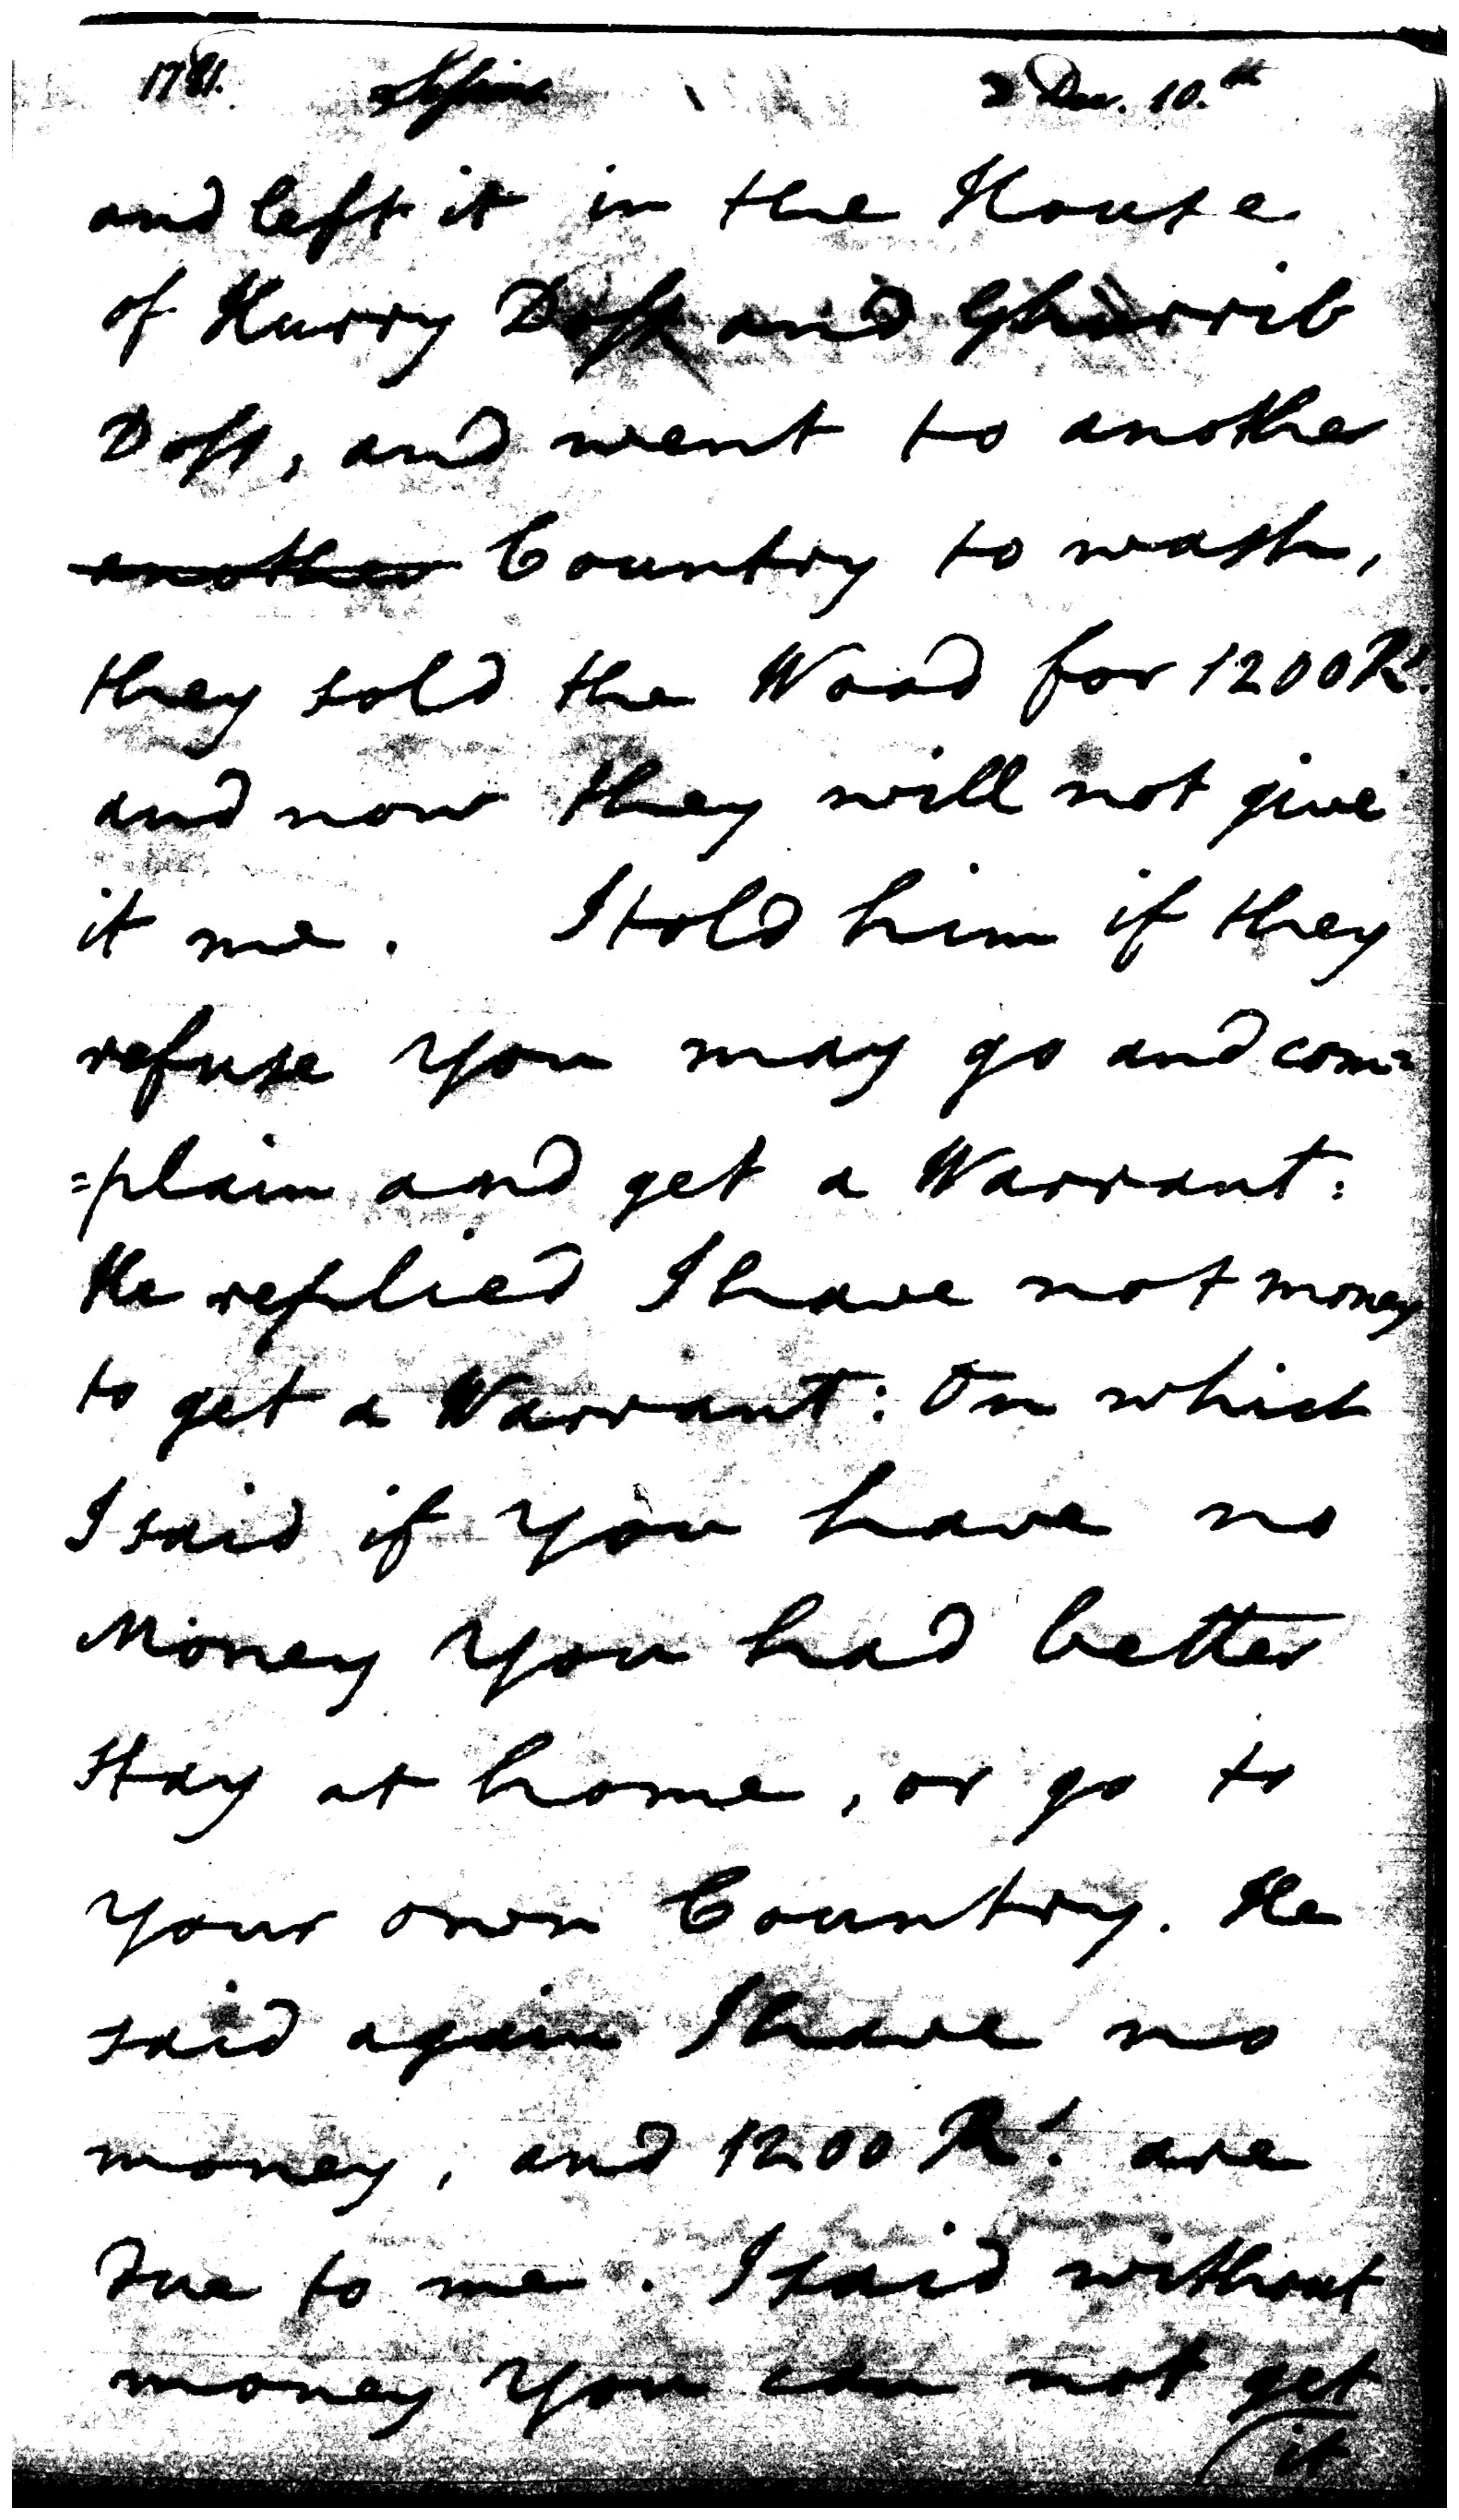 1781. Dec. 10.th
and left it in the House
of Hurry Doss and Ghurrib
Doss, and went to another
another Country to wash,
they sold the Wood for 1200 Rs.
and now they will not give
it me. I told him if they
refuse you may go and com=
=plain and get a Warrant:
He replied I have not money
to get a Warrant: On which
I said if you have no
Money you had better
stay at home, or go to
your own Country. He
said again I have no
money, and 1200 Rs. are
due to me. I said without
money you can not get
it